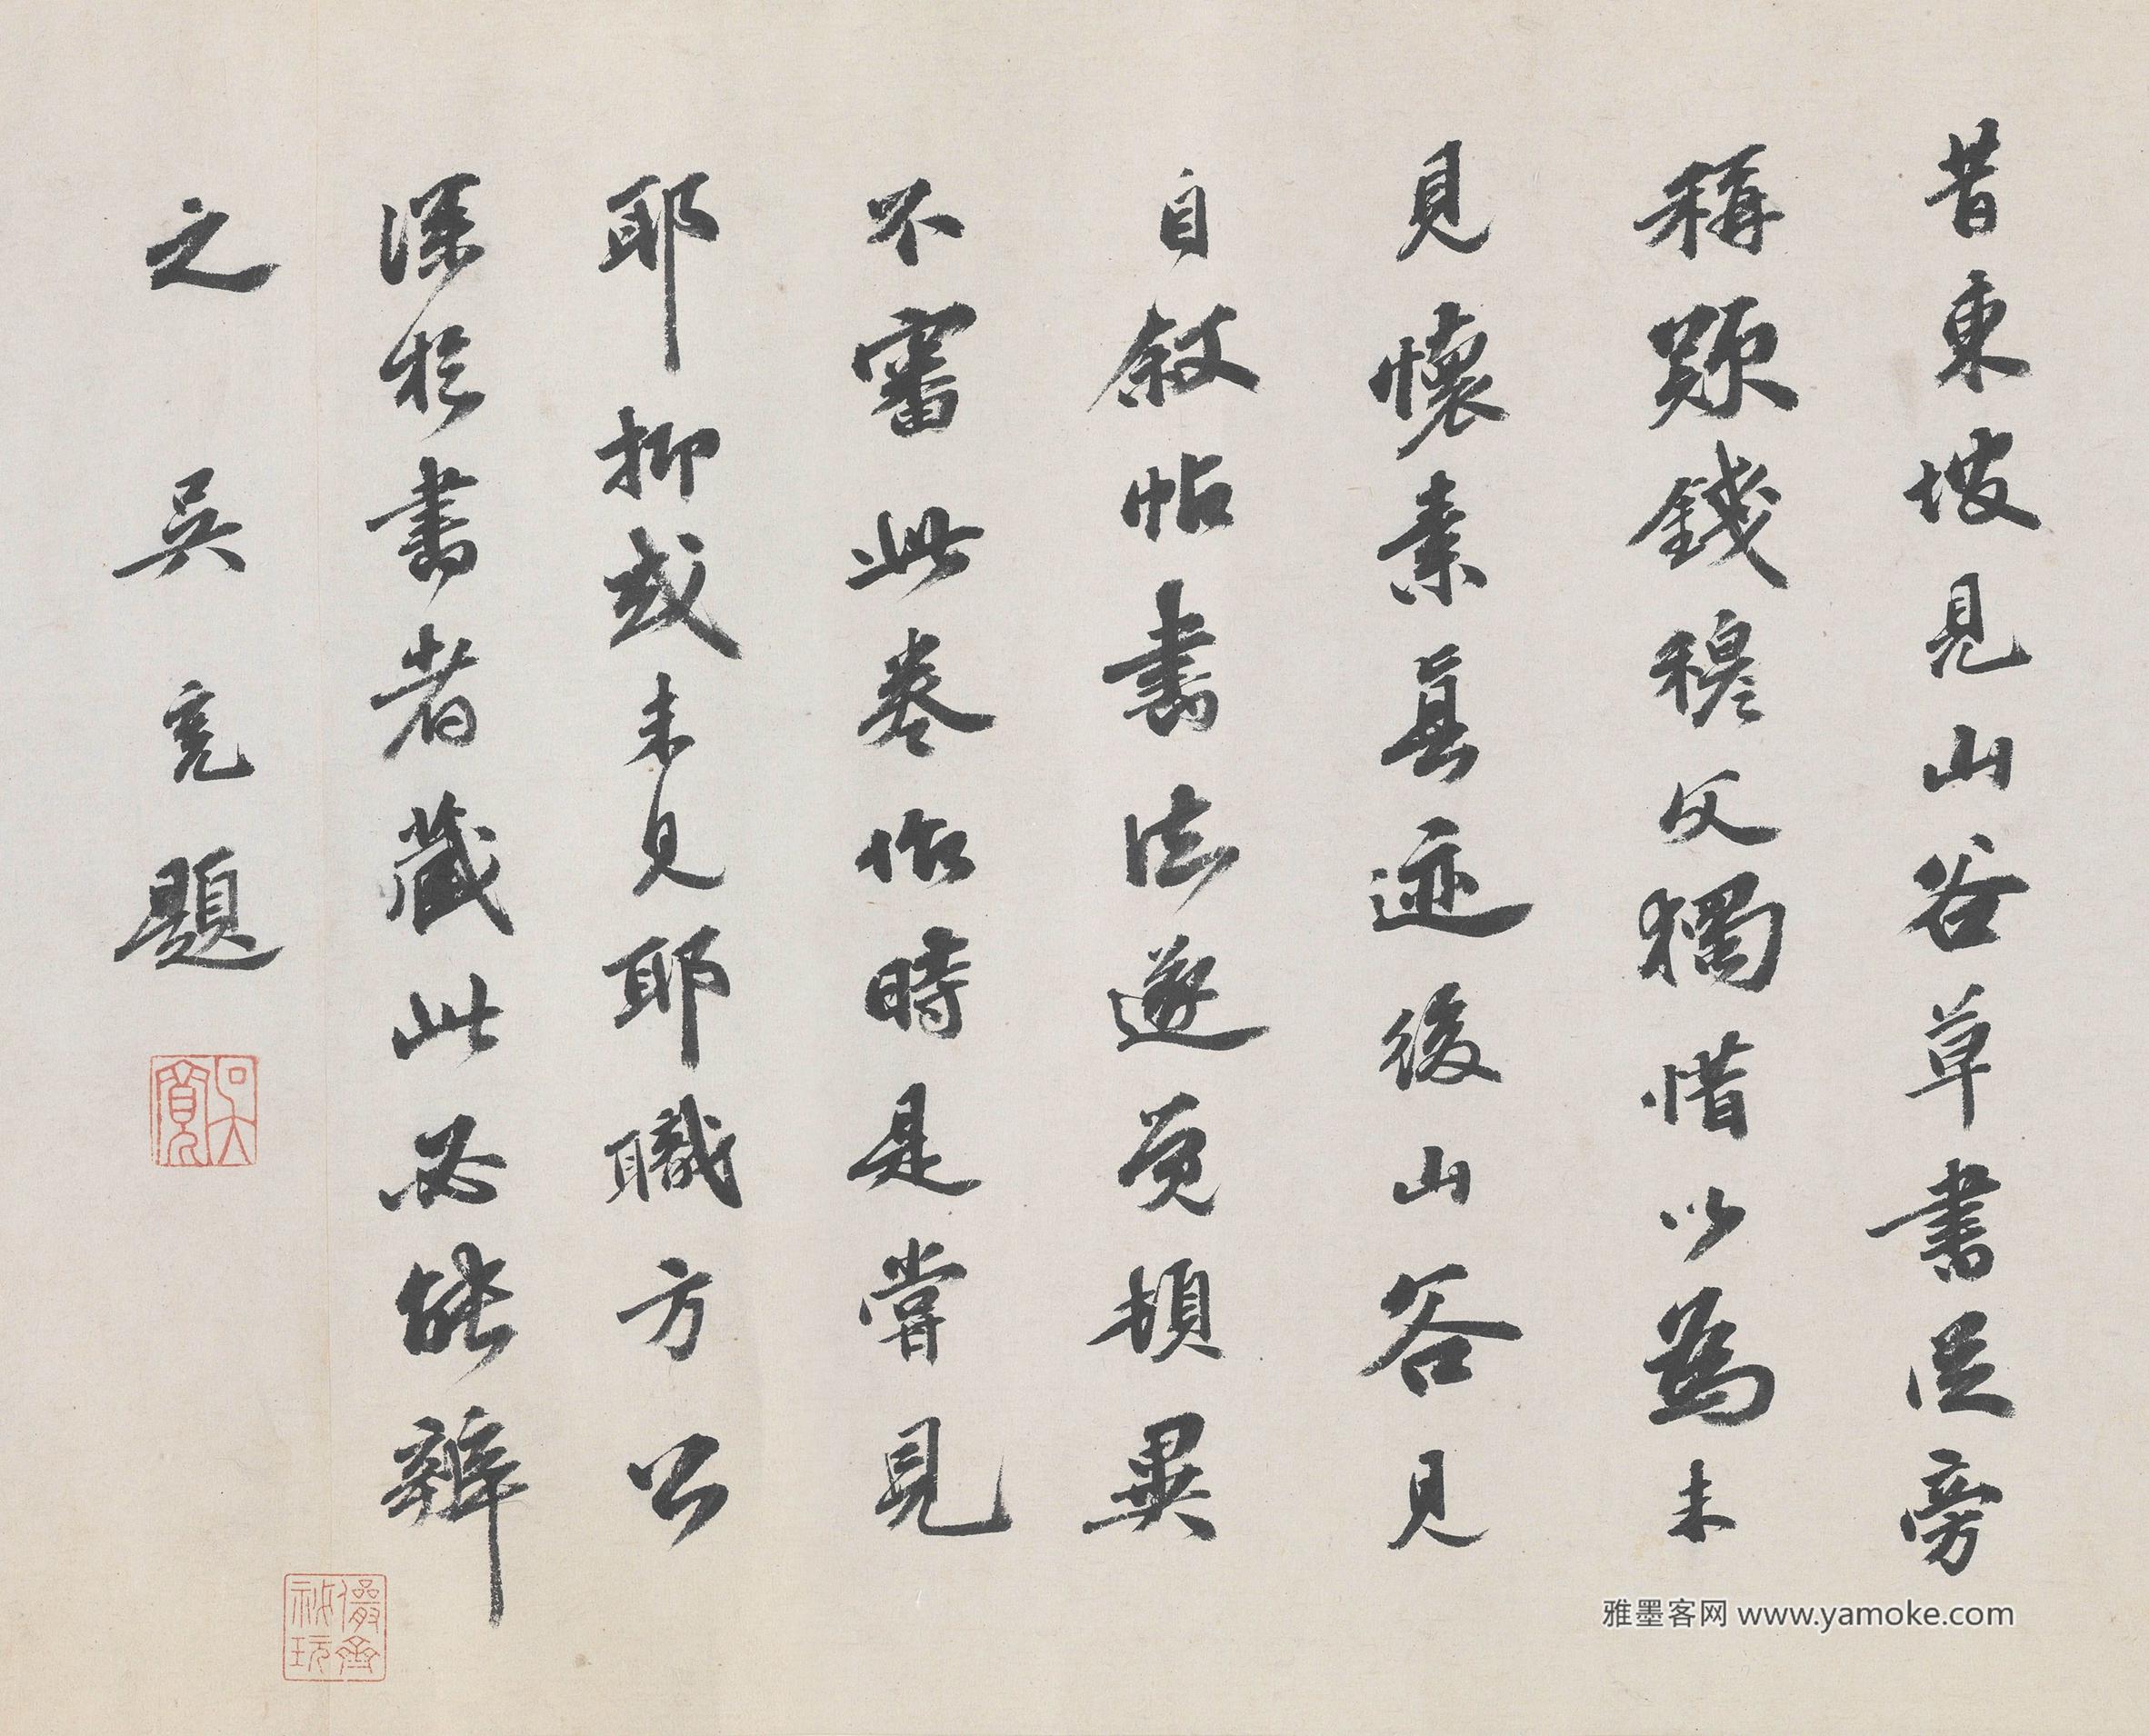 昔東坡見山谷草書從旁
稱歎錢穆父獨惜以為未
見懷素真迹後山谷見
自敘帖書法遂覺頓異
不審此卷作時是嘗見
耶抑或未見耶職方公
深於書者藏此必能辨
之 吳寬題
吳寬
儼齋祕玩
雅墨客网 www.yamoke.com